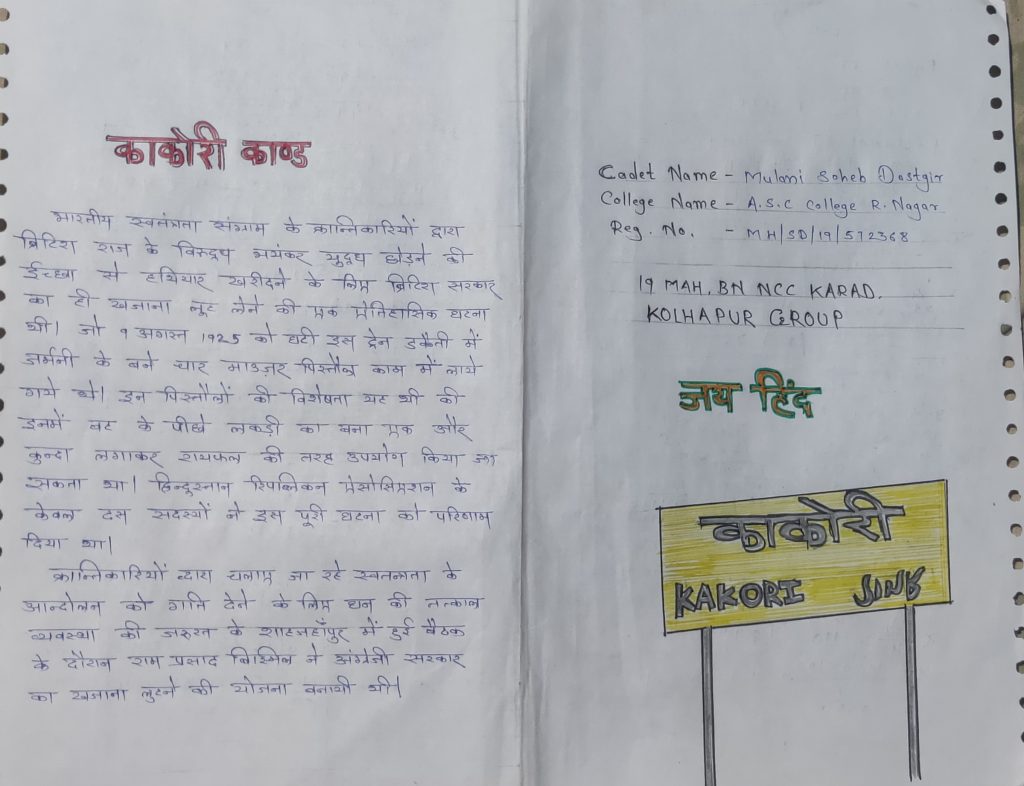 काकोरी काण्ड
भारतीय स्वतंत्रता संग्राम के क्रान्तिकारियों द्वारा
ब्रिटिश राज के विरुद्ध भयंकर युद्ध छोड़ने की
ईच्छा से हथियार खरीदने के लिए ब्रिटिश सरकार
का ही खजाना लूट लेने की एक ऐतिहासिक घटना
थी। जो ९ अगस्त 1925 को घटी इस ट्रेन डकैती में
जर्मनी के बने चार माउज़र पिस्तौल काम में लाये
गये थे। इन पिस्तौलों की विशेषता यह थी की
इनमें बट के पीछे लकड़ी का बना एक और
कुन्दा लगाकर रायफल की तरह उपयोग किया जा
सकता था। हिन्दुस्तान रिपब्लिकन ऐसोसिएशन के
केवल दस सदस्यों ने इस पूरी घटना को परिणाम
दिया था।
क्रान्तिकारियों द्वारा चलाए जा रहे स्वतन्त्रता के
आन्दोलन को गति देने के लिए धन की तत्काल
व्यवस्था की जरुरत के शाहजहाँपुर में हुई बैठक
के दौरान राम प्रसाद बिस्मिल ने अंग्रेजी सरकार
का खजाना लुटने की योजना बनायी थी।
Cadet Name - Mulani Soheb Dastgir
College Name - A.S.C College R. Nagar
Reg. No. - MH/SD/19/572368
19 MAH. BN NCC KARAD.
KOLHAPUR GROUP
जय हिंद
काकोरी
KAKORI